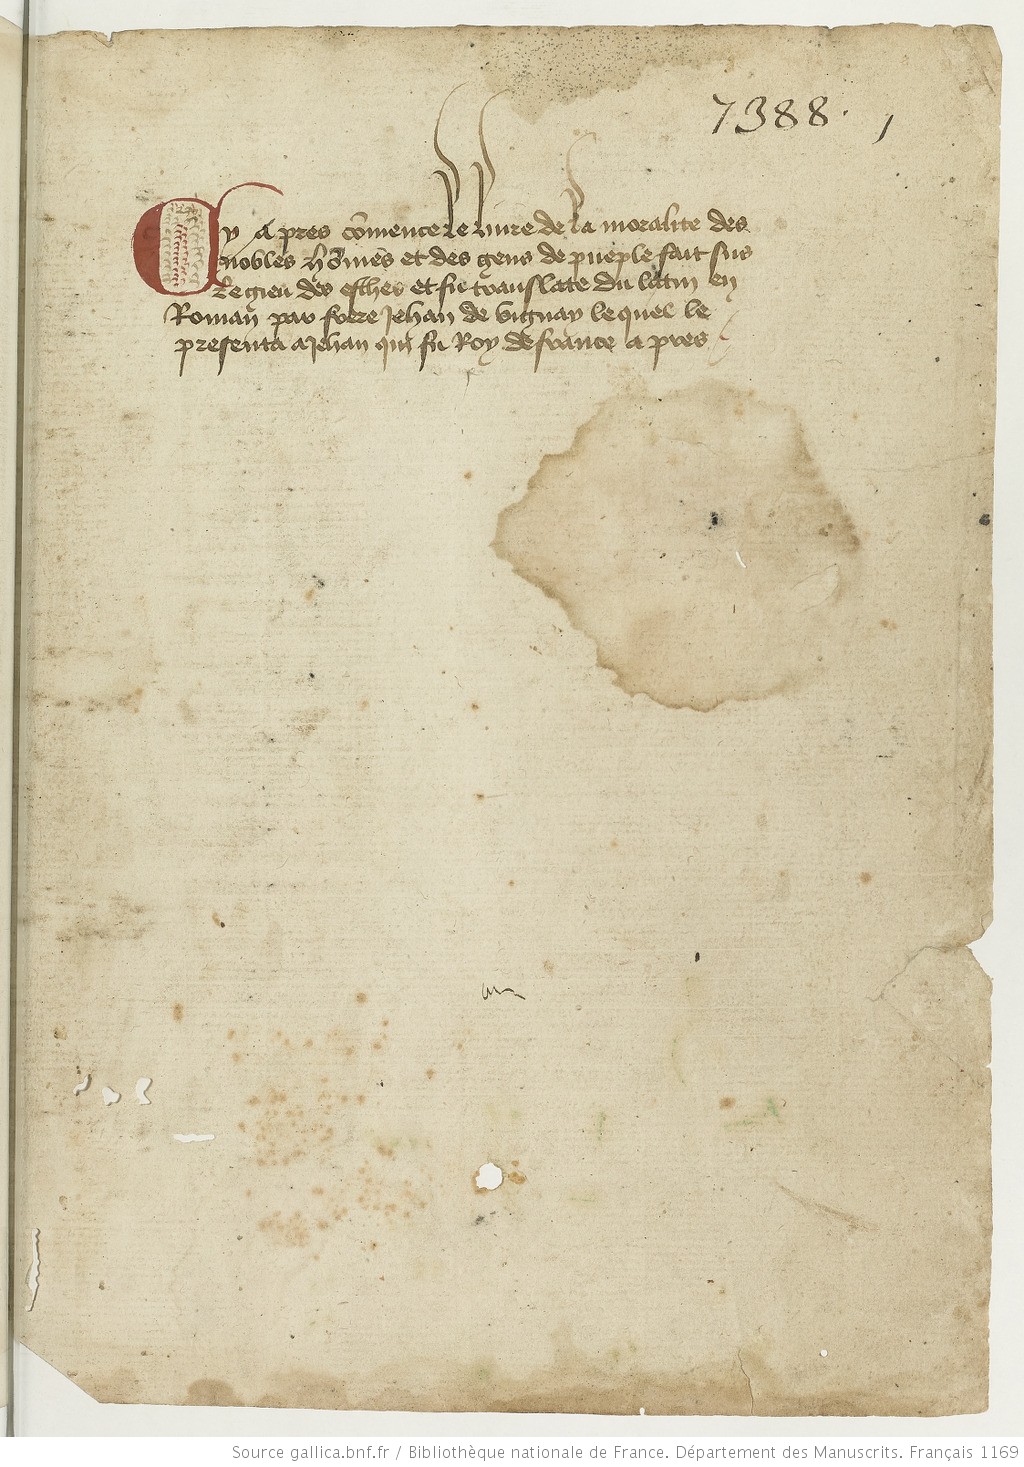 7388. 1
Cy apres cõmence le livre de la moralite des
nobles hõmes et des gens de pueple fait sus
le gieu des esches et fu translate du latin en
Roman par frere Jehan de vignay lequel le
presenta a Jehan qui fu Roy de france apres
Source gallica.bnf.fr / Bibliothèque nationale de France. Département des Manuscrits. Français 1169